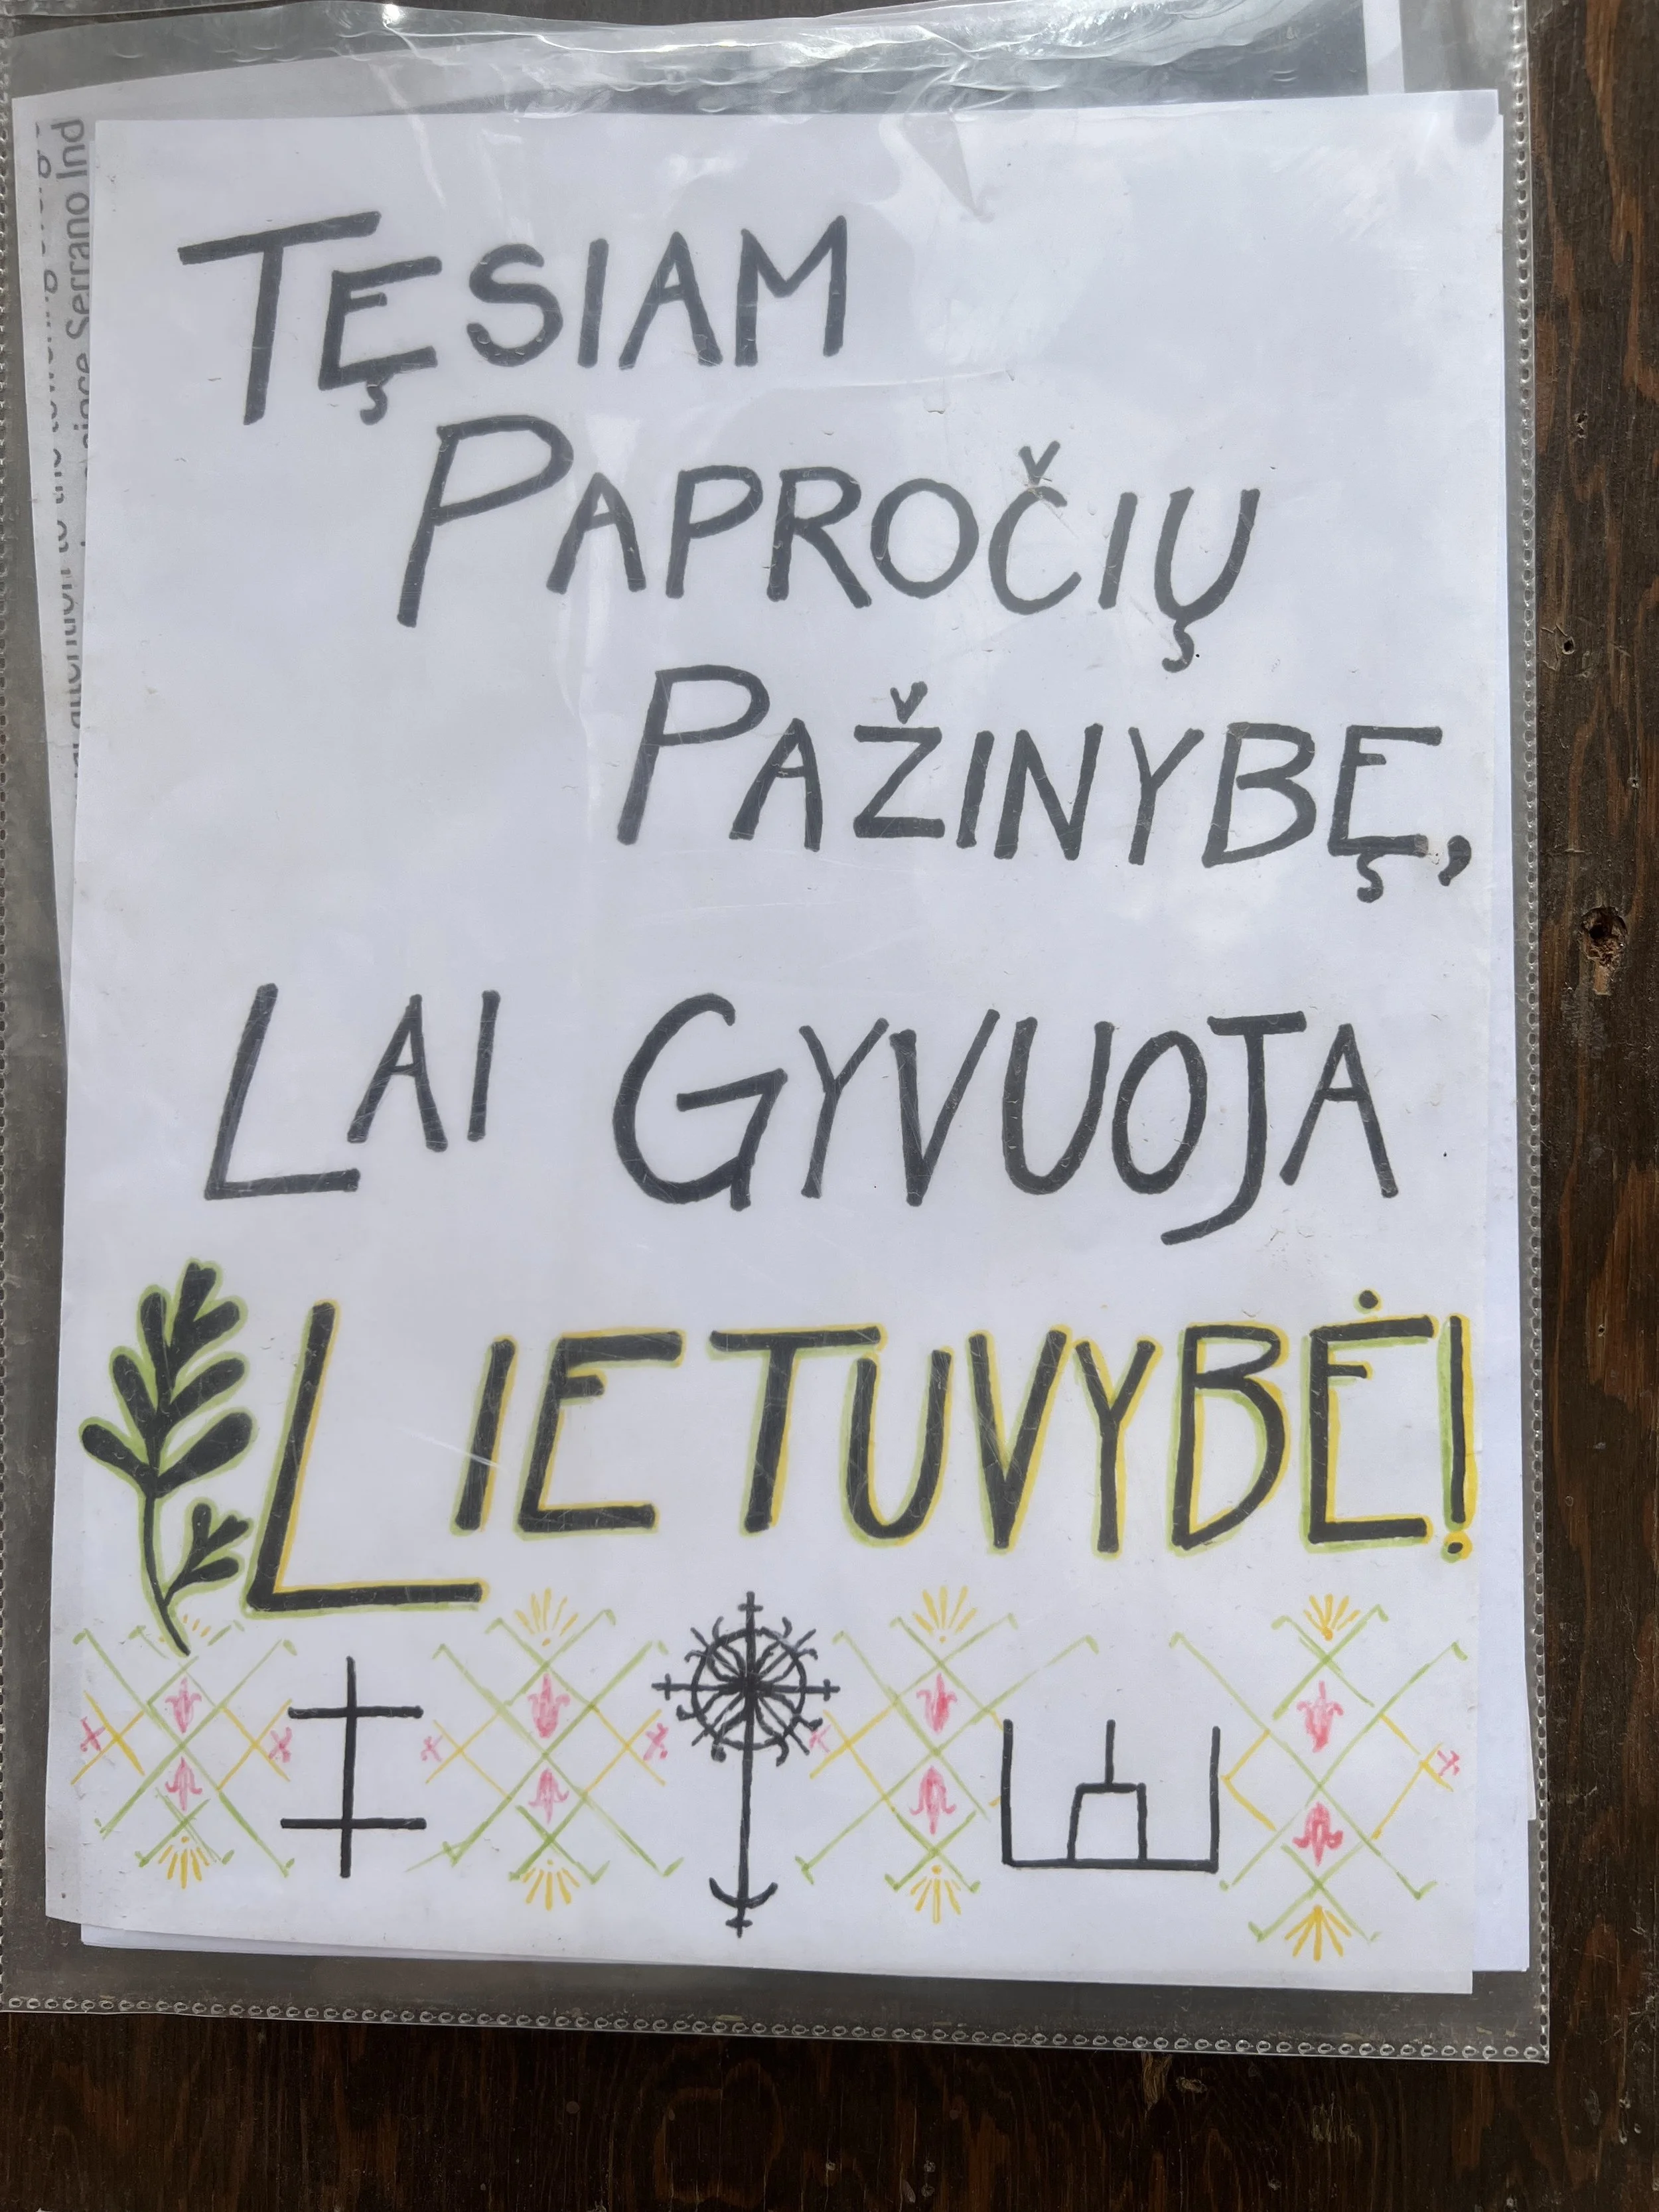 TĘSIAM
PAPROČIŲ
PAŽINYBĘ,
LAI GYVUOJA
LIETUVYBĖ!
since Serrano Ind